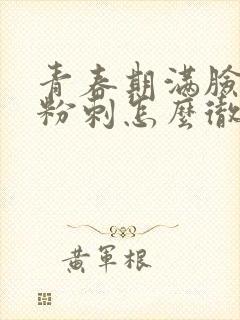 青春期滿臉
粉刺怎麼徹
黃軍根